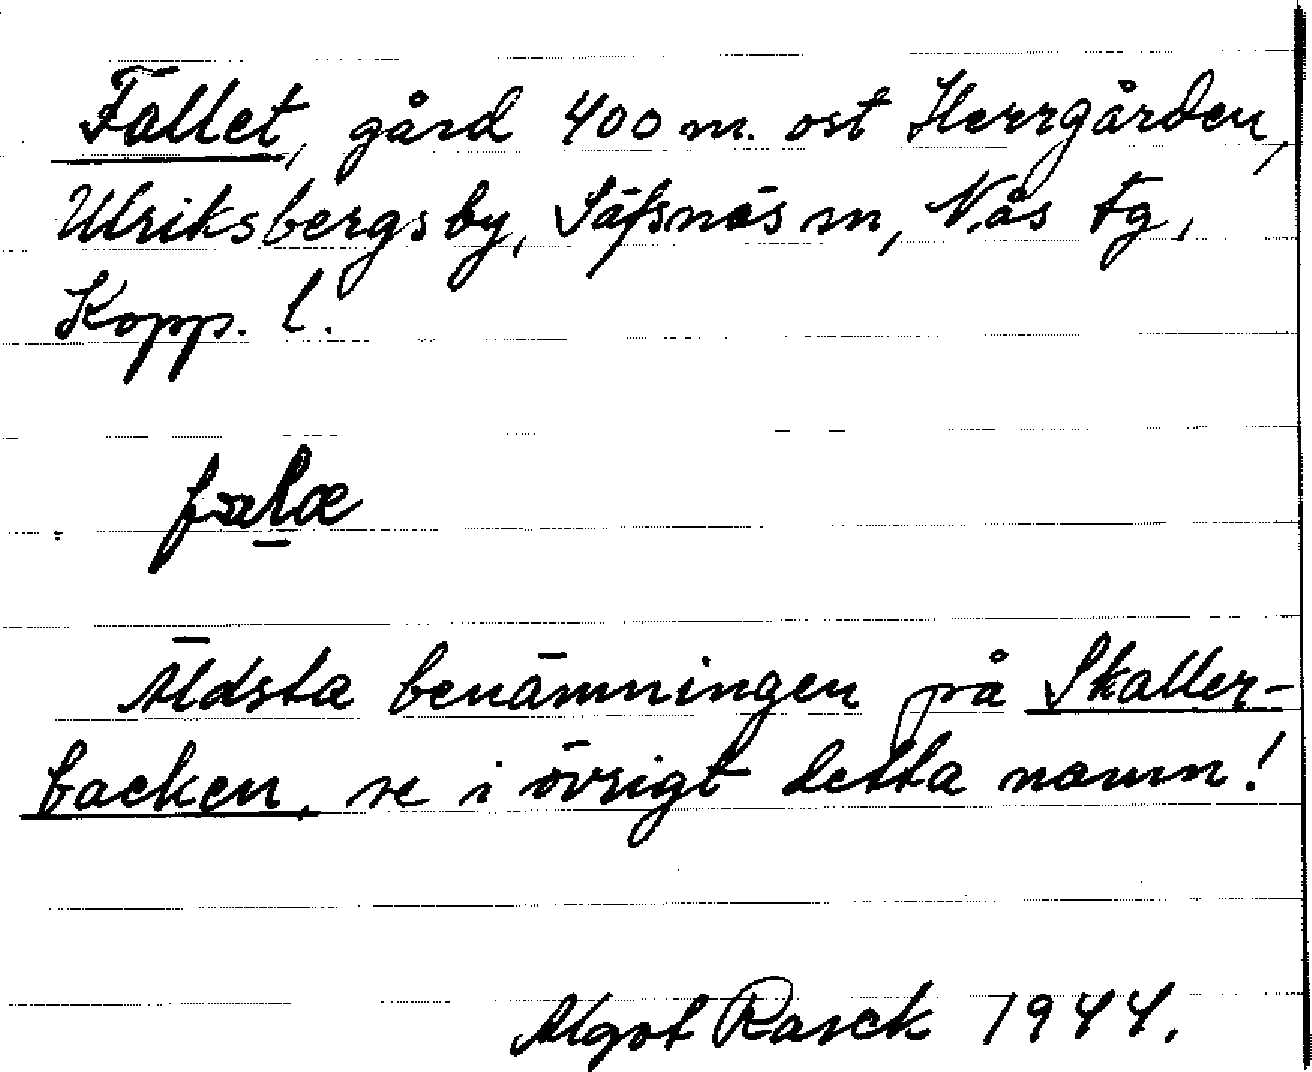 Fallet, gård 400 m. ost Herrgården,
Ulriksbergsby, Säfsnäs sn, Nås tg,
Kopp. l.
Äldsta benämningen på Skaller-
backen, se i övrigt detta namn!
Algot Rasck 1944.